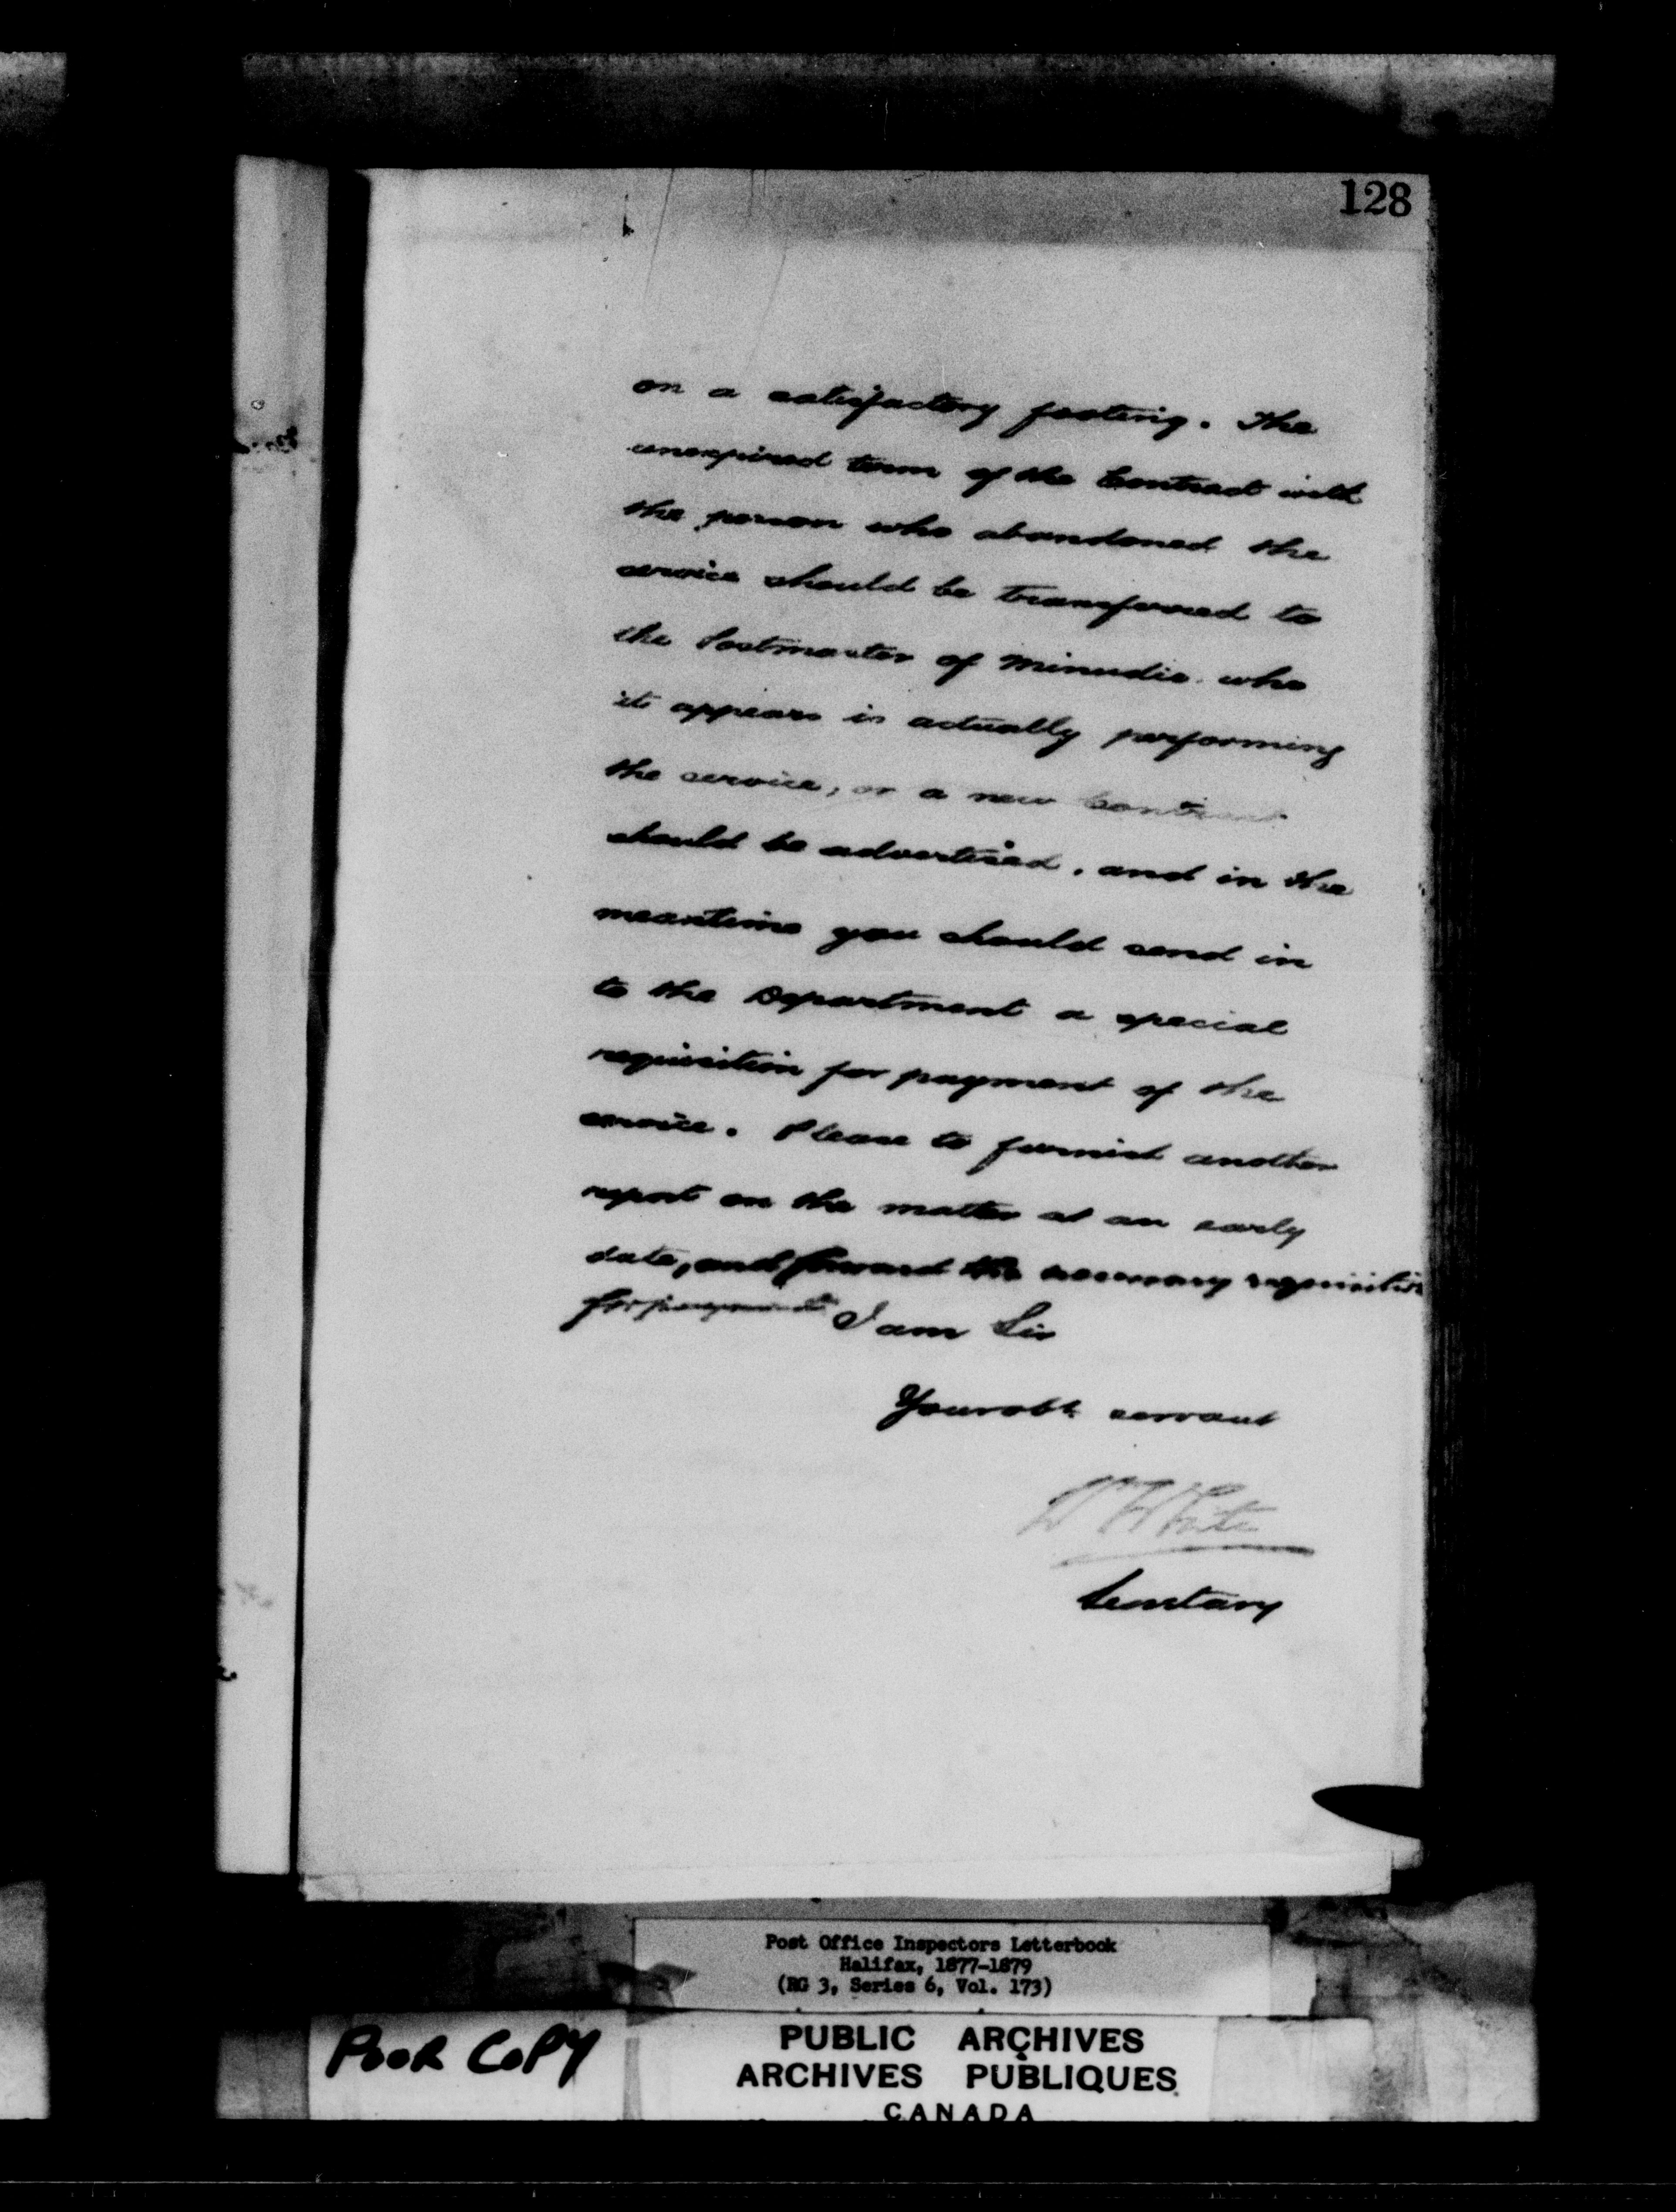 128
on a satisfactory footing. The
unexpired term of the Contract with
the person who abandoned the
service should be transferred to
the Postmaster of Minudie who
it appears is actually performing
the service, or a new Contract
should be advertised, and in the
meantime you should send in
to the Department a special
requisition for payment of the
service. Please to furnish another
report on the matter at an early
date, and forward the necessary requisition
for payment I am Sir
Your obt servant
White
Secretary
Post Office Inspectors Letterbook
Halifax, 1877-1879
(RG 3, Series 6, Vol. 173)
POOR COPY
PUBLIC ARCHIVES
ARCHIVES PUBLIQUES
CANADA